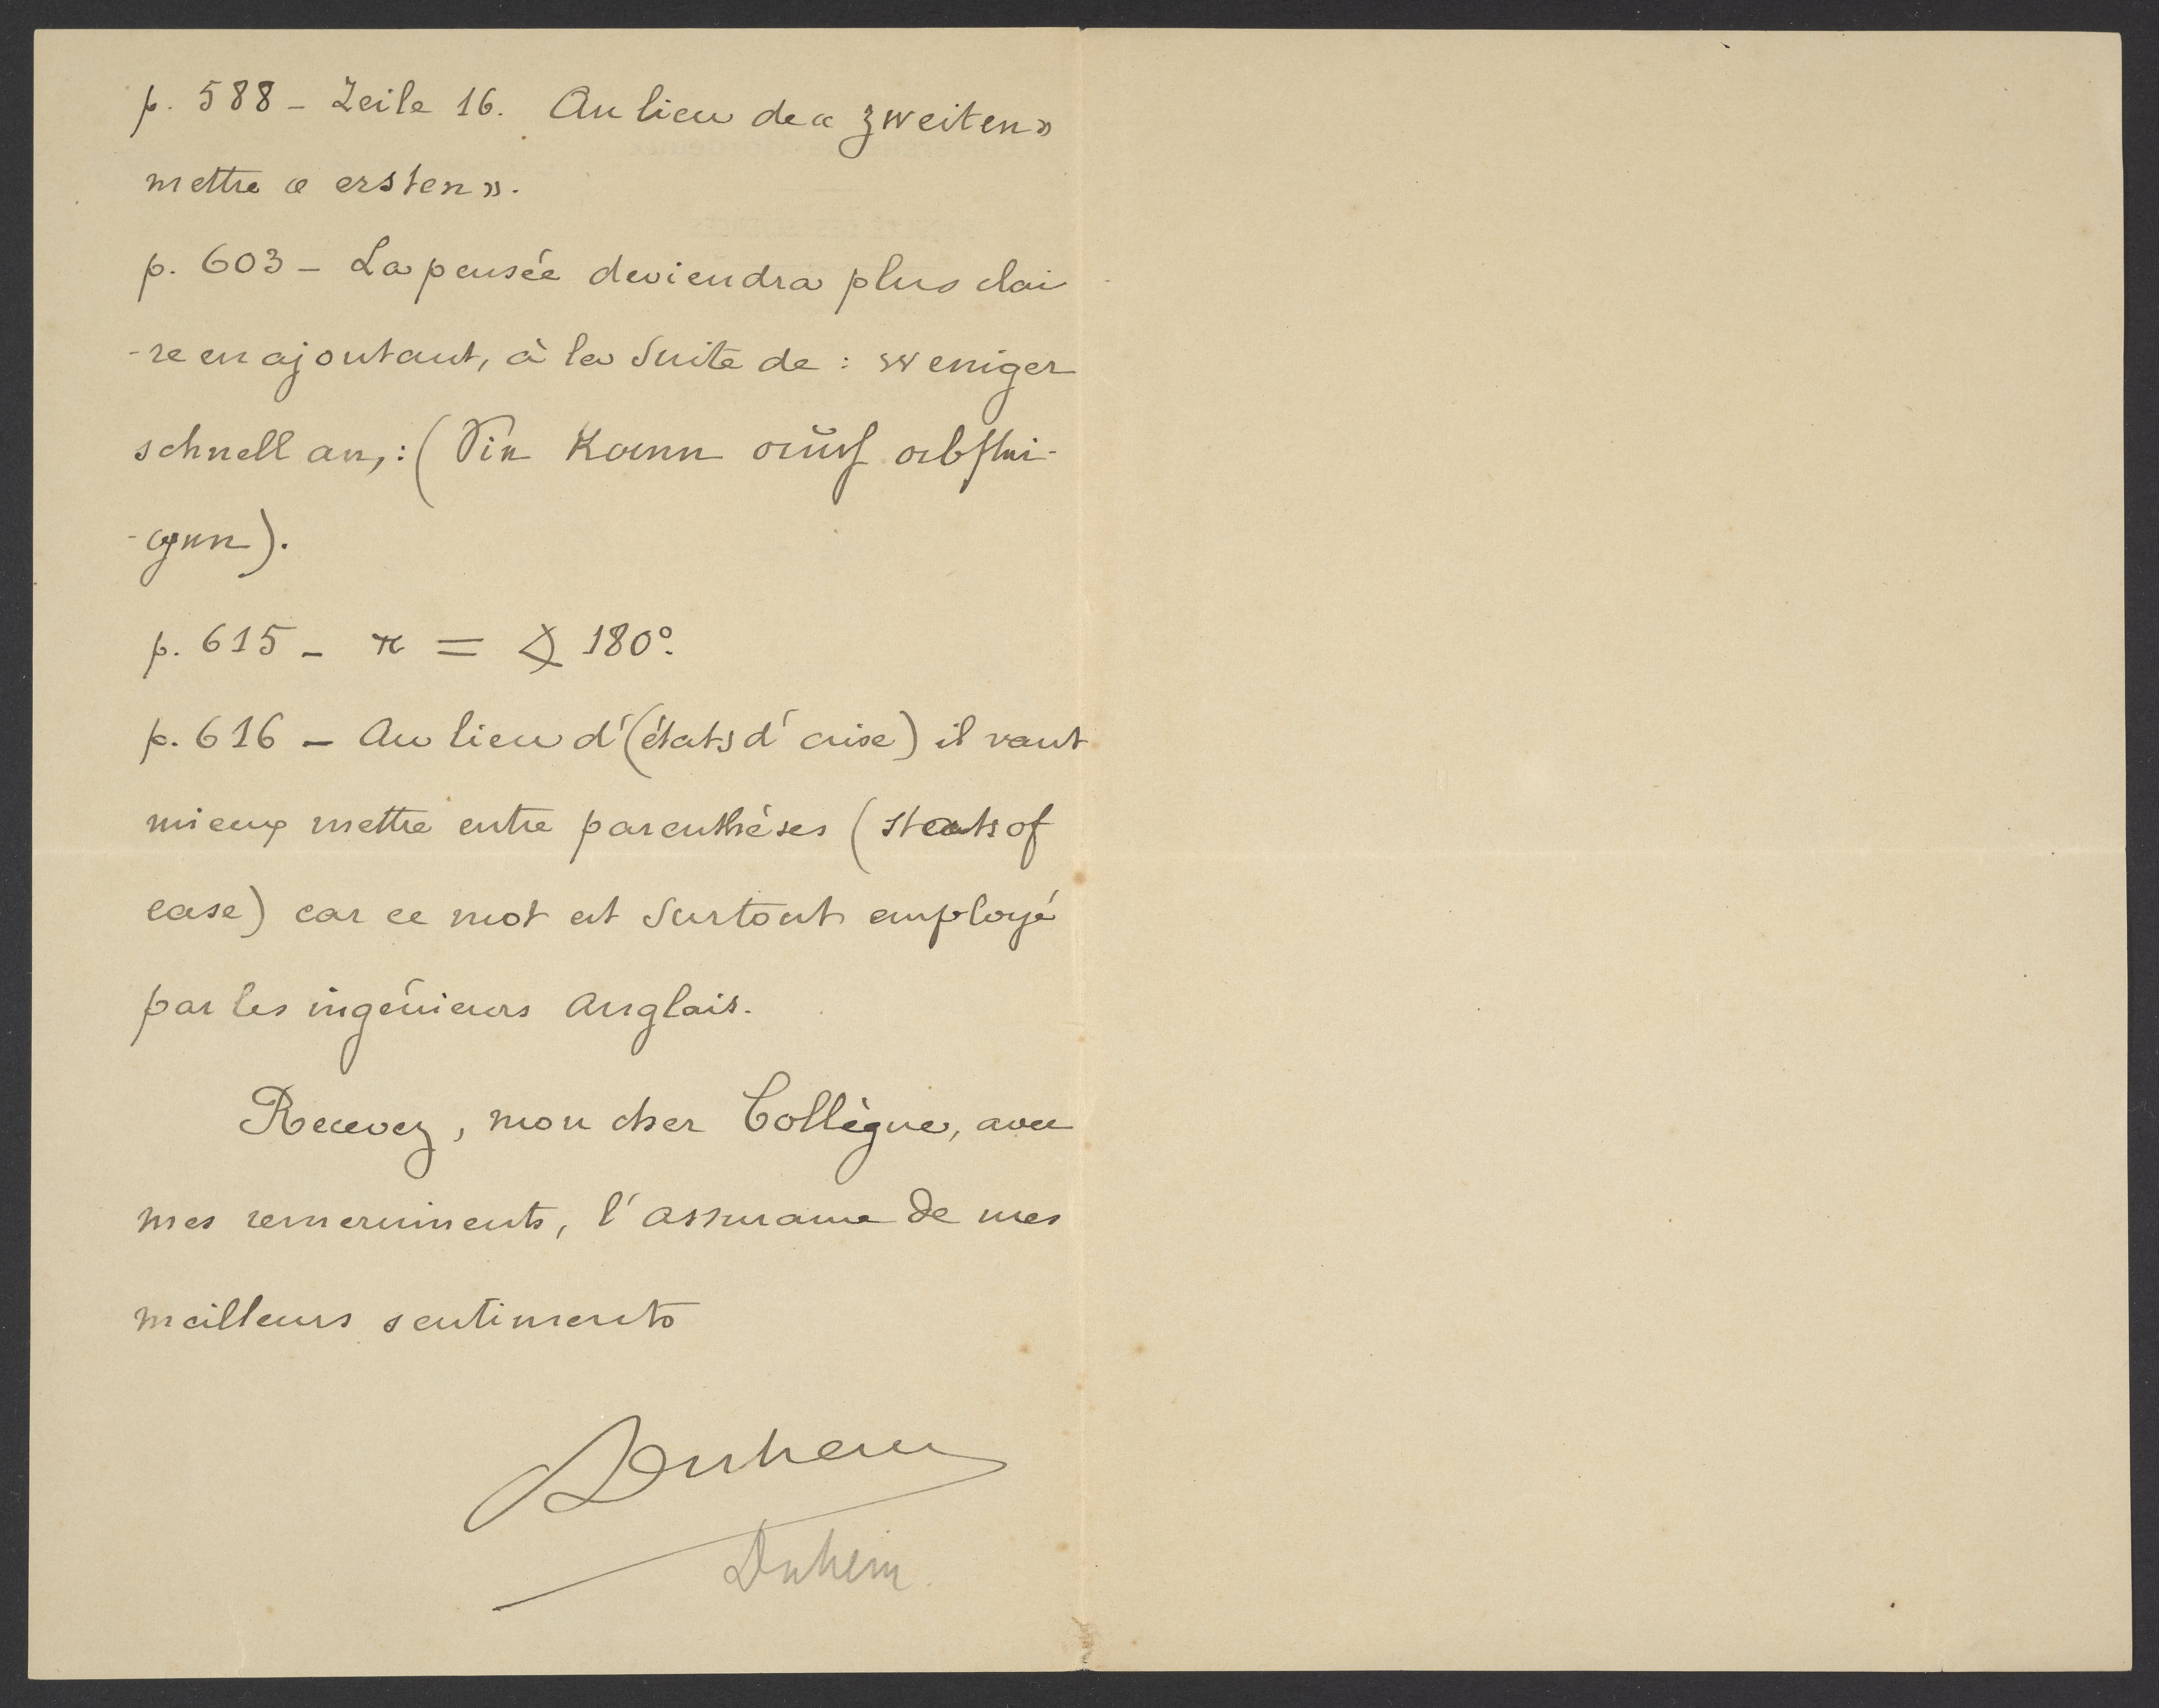 p. 588 - Zeile 16. Au lieu de « zweiten »
mettre « ersten ».
p. 603 - La pensée deviendra plus clai
-re en ajoutant, à la suite de : weniger
schnell an, : (Sie kann auch abstei-
-gen).
p. 615 - π = ∡ 180°.
p. 616 - Au lieu d'(états d'aise) il vaut
mieux mettre entre parenthèses (steats of
ease) car ce mot est surtout employé
par les ingénieurs Anglais.
Recevez, mon cher Collègue, avec
mes remerciments, l'assurance de mes
meilleurs sentiments
Duhem
Duhem.